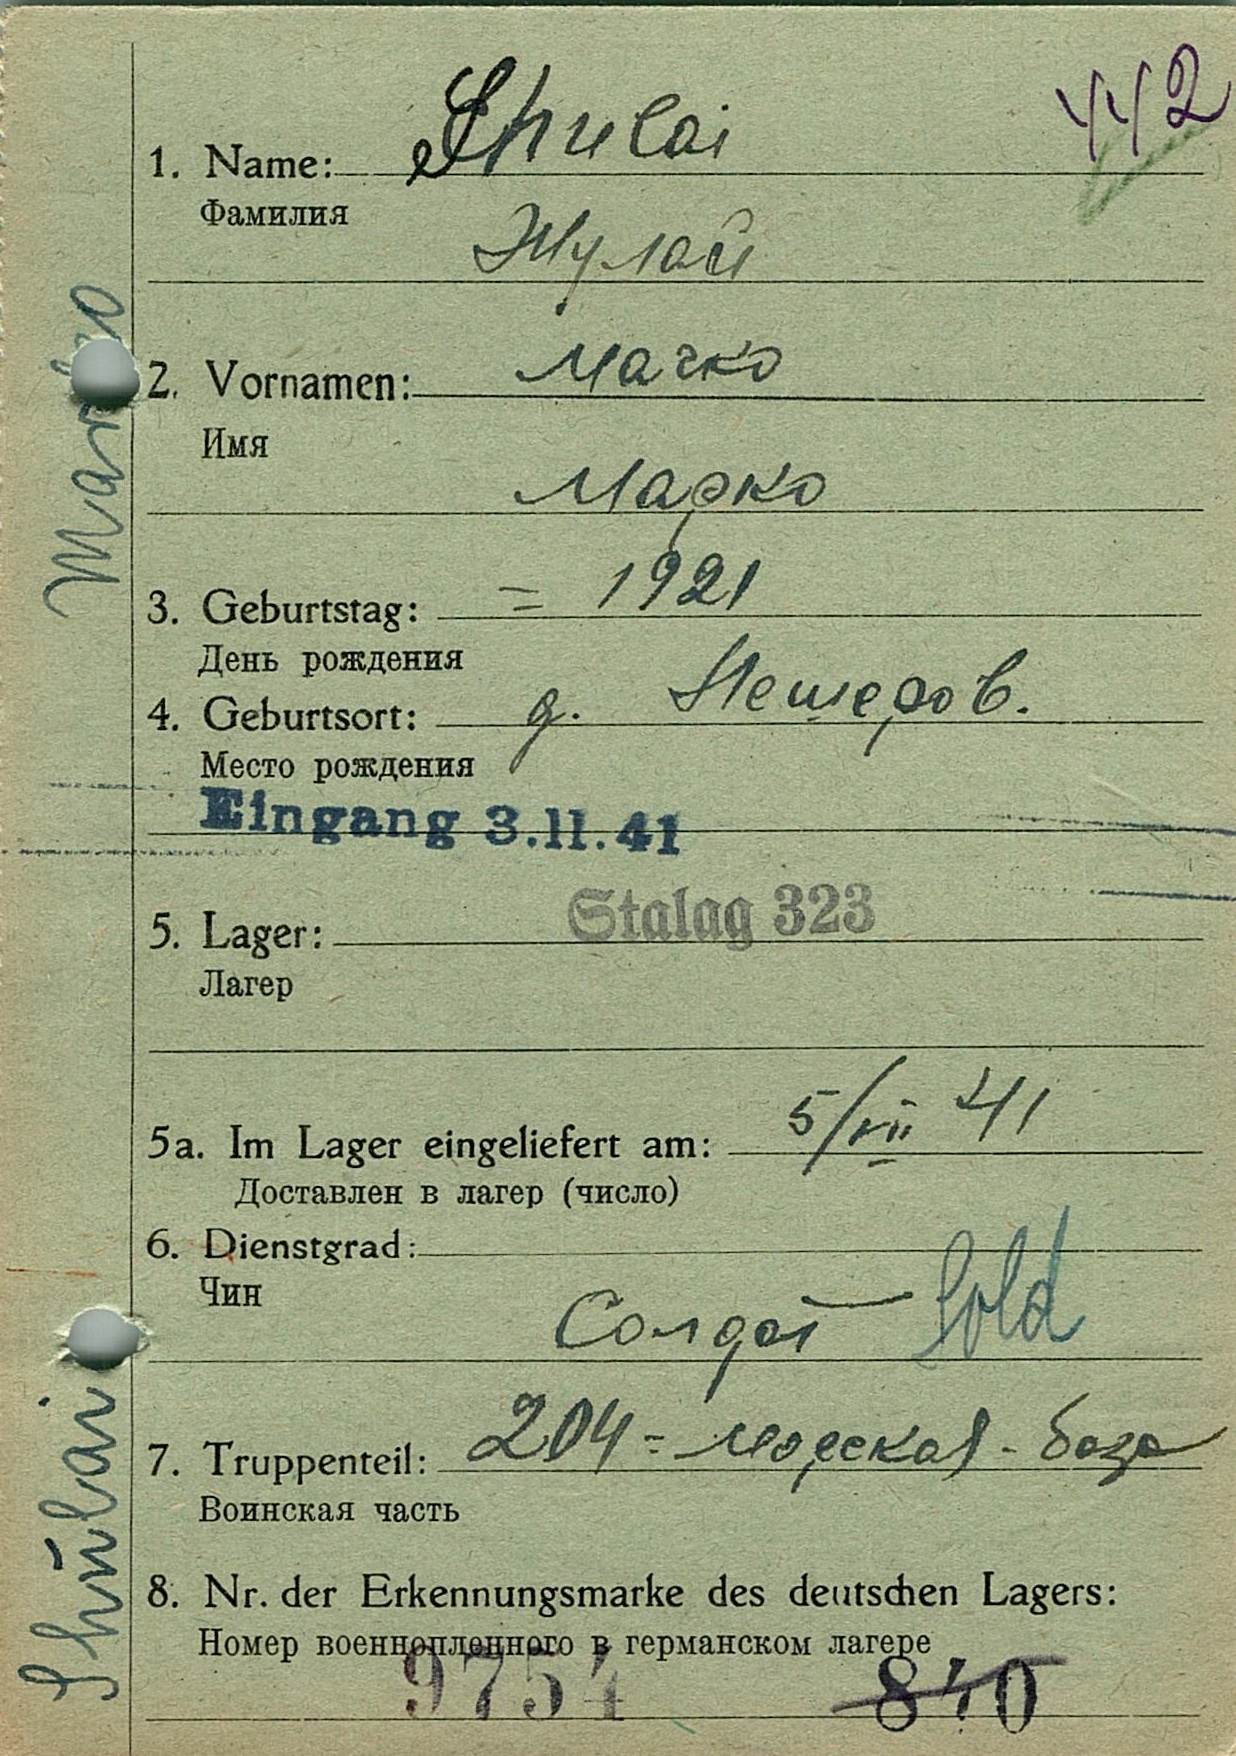 442
1. Name: Shulai
Фамилия
Жулай
2. Vornamen: Марко
Имя
Марко
3. Geburtstag: = 1921
День рождения
4. Geburtsort: д.
Место рождения
Eingang 3.11.41
5. Lager: Stalag 323
Лагер
5a. Im Lager eingeliefert am: 5/VII 41
Доставлен в лагер (число)
6. Dienstgrad:
Чин
Солдат Sold
7. Truppenteil: 204 = морская - база
Воинская часть
8. Nr. der Erkennungsmarke des deutschen Lagers:
Номер военнопленного в германском лагере
9754 840
Marko
Shulai